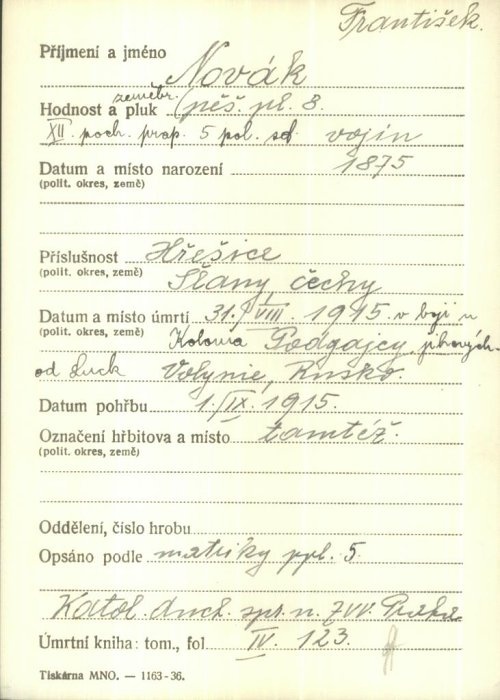 František.
Příjmení a jméno
Novák
zeměbr.
Hodnost a pluk (pěš. pl. 8.
XII. poch. prap. 5 pol. sd. vojín
Datum a místo narození 1875
(polit. okres, země)
Příslušnost Hřešice
(polit. okres, země)
Slaný, čechy
Datum a místo úmrtí 31./VIII. 1915. v boji u
(polit. okres, země) Kolonia Podgajcy, jihových.
od Luck Volynie, Rusko.
Datum pohřbu 1./IX. 1915.
Označení hřbitova a místo tamtéž.
(polit. okres, země)
Oddělení, číslo hrobu
Opsáno podle matriky ppl. 5.
Katol. duch. spr. n. ZVV. Praha
Úmrtní kniha: tom., fol IV. 123.
Tiskárna MNO. — 1163-36.